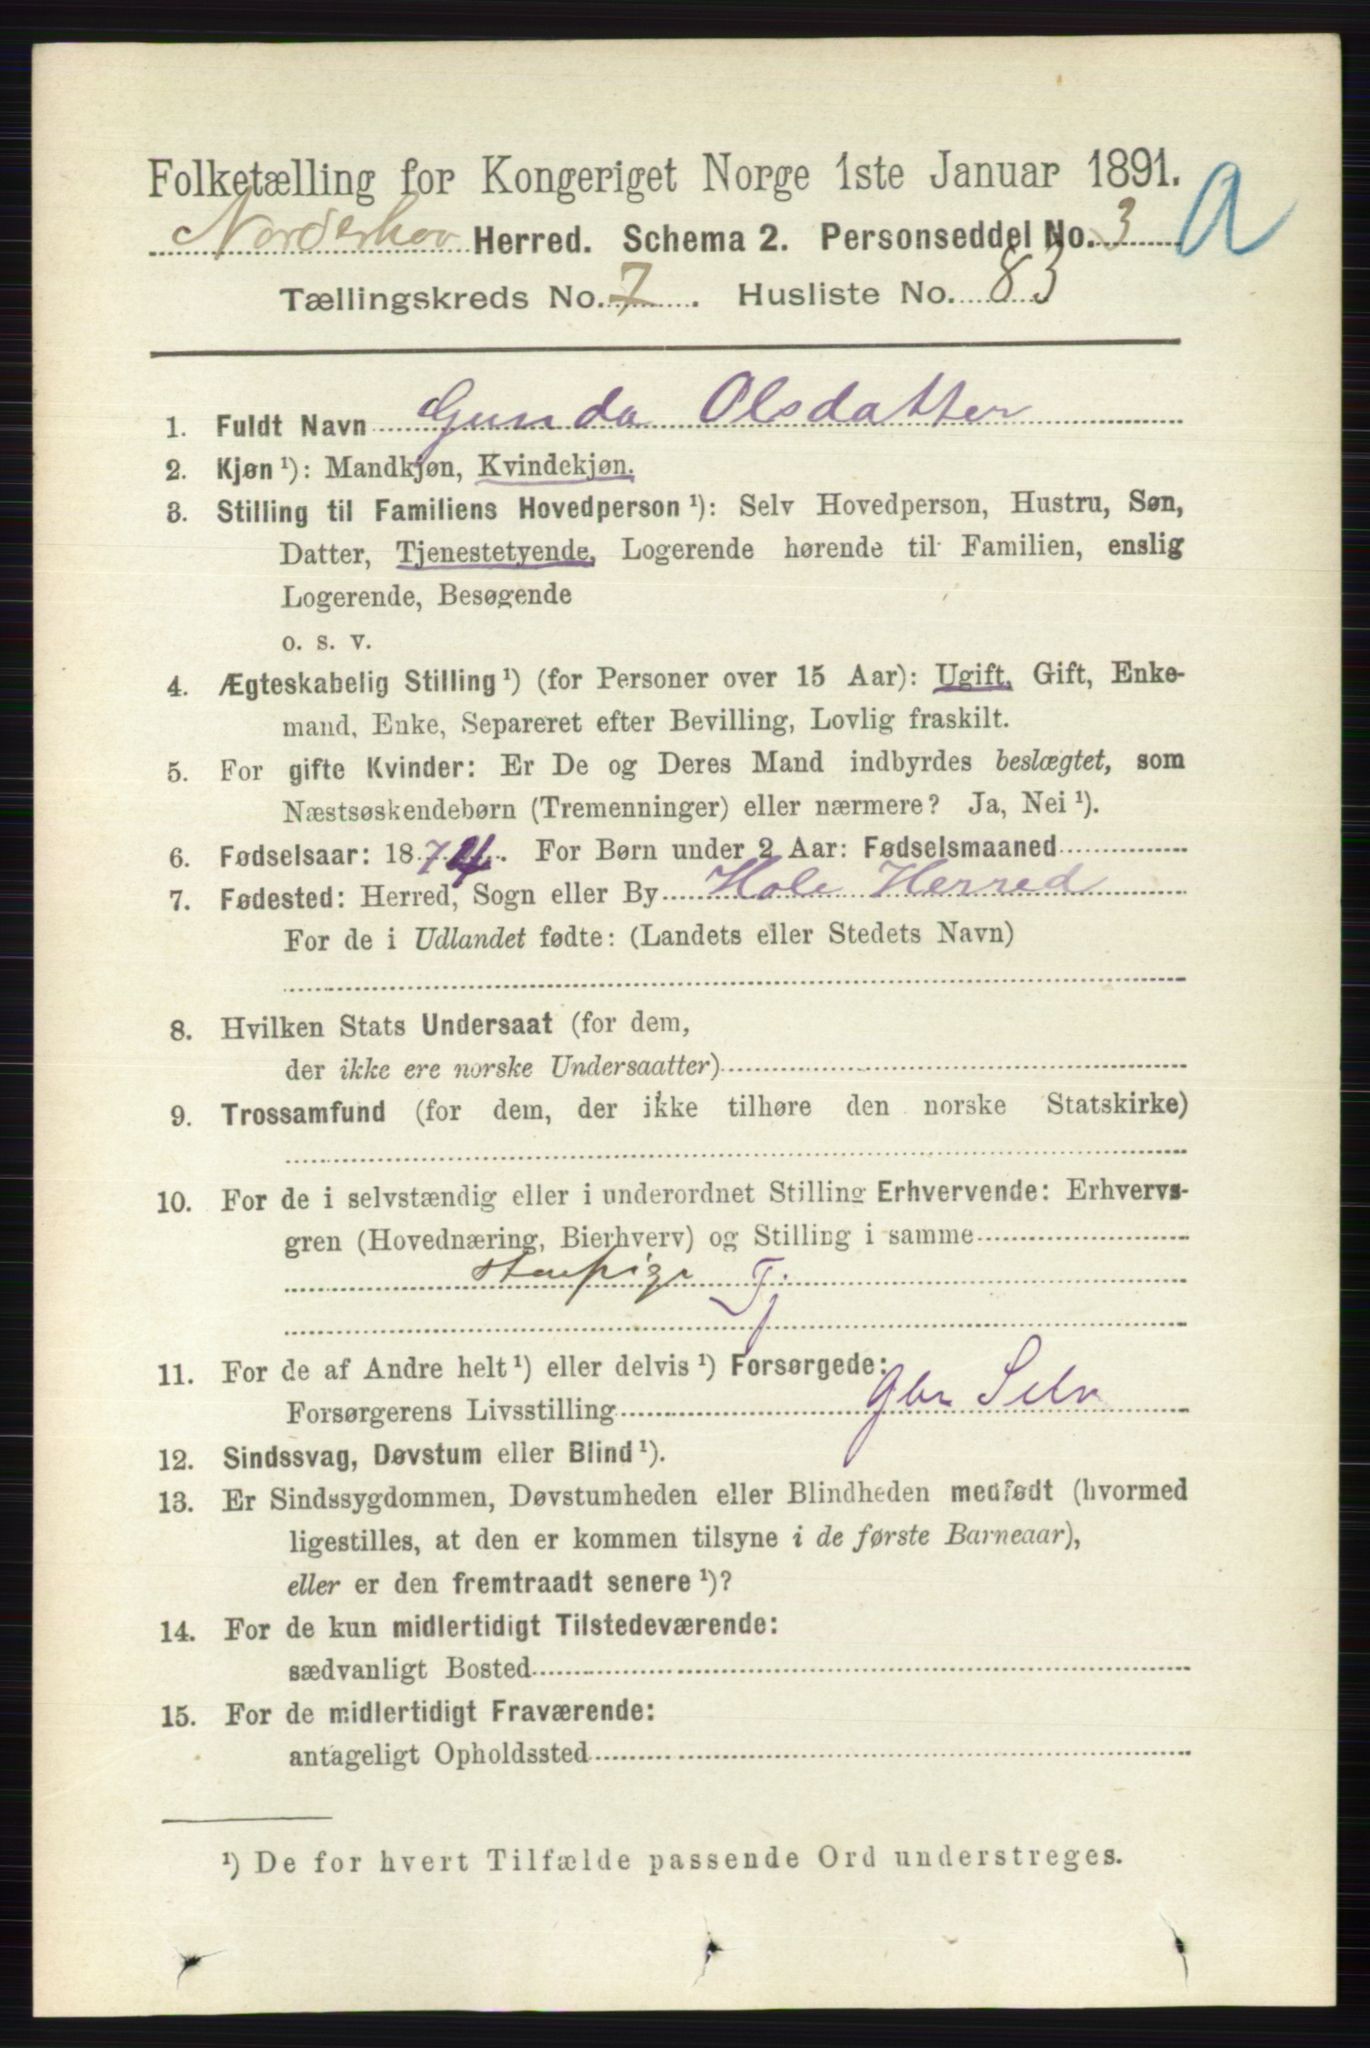 Folketælling for Kongeriget Norge 1ste Januar 1891.
A
Norderhov Herred. Schema 2. Personseddel No. 3
Tællingskreds No. 7. Husliste No. 83
1. Fuldt Navn Gunda Olsdatter
2. Kjøn ¹): Mandkjøn, Kvindekjøn.
3. Stilling til Familiens Hovedperson ¹): Selv Hovedperson, Hustru, Søn,
Datter, Tjenestetyende, Logerende hørende til Familien, enslig
Logerende, Besøgende
o. s. v.
4. Ægteskabelig Stilling ¹) (for Personer over 15 Aar): Ugift, Gift, Enke-
mand, Enke, Separeret efter Bevilling, Lovlig fraskilt.
5. For gifte Kvinder: Er De og Deres Mand indbyrdes beslægtet, som
Næstsøskendebørn (Tremenninger) eller nærmere? Ja, Nei ¹).
6. Fødselsaar: 1874. For Børn under 2 Aar: Fødselsmaaned
7. Fødested: Herred, Sogn eller By Hole Herred
For de i Udlandet fødte: (Landets eller Stedets Navn)
8. Hvilken Stats Undersaat (for dem,
der ikke ere norske Undersaatter)
9. Trossamfund (for dem, der ikke tilhøre den norske Statskirke)
10. For de i selvstændig eller i underordnet Stilling Erhvervende: Erhvervs-
gren (Hovednæring, Bierhverv) og Stilling i samme
Stuepige Tj
11. For de af Andre helt ¹) eller delvis ¹) Forsørgede:
Forsørgerens Livsstilling Gbr Selv
12. Sindssvag, Døvstum eller Blind ¹).
13. Er Sindssygdommen, Døvstumheden eller Blindheden medfødt (hvormed
ligestilles, at den er kommen tilsyne i de første Barneaar),
eller er den fremtraadt senere ¹)?
14. For de kun midlertidigt Tilstedeværende:
sædvanligt Bosted
15. For de midlertidigt Fraværende:
antageligt Opholdssted
¹) De for hvert Tilfælde passende Ord understreges.